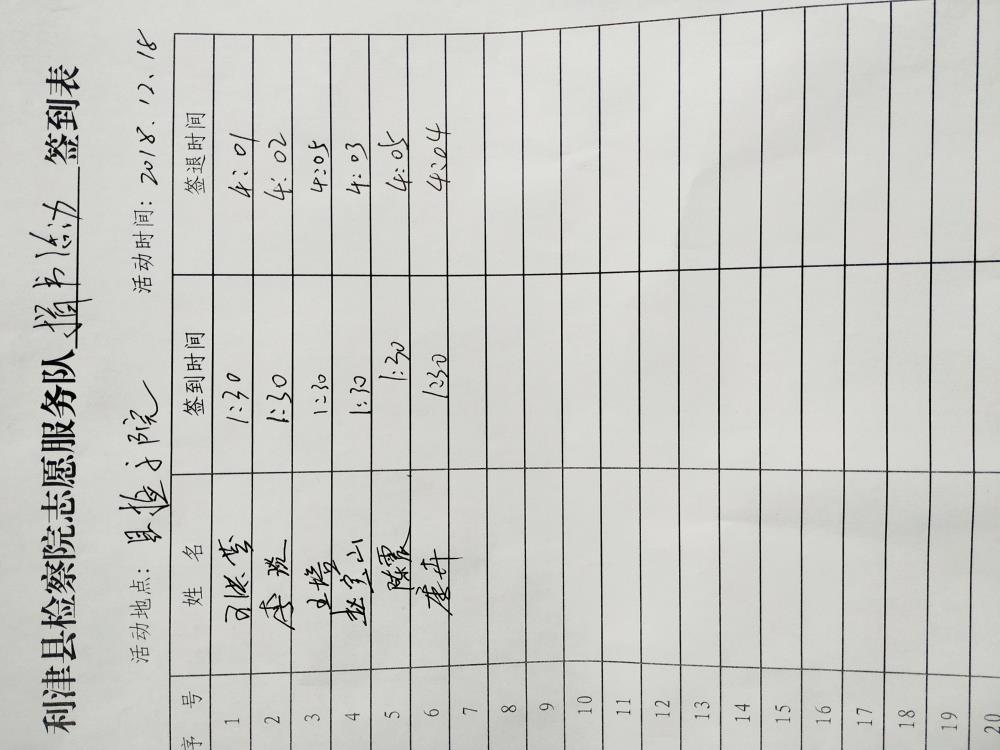 利津县检察院志愿服务队捐书活动签到表
活动地点：县检察院 活动时间：2018.12.18
序号 姓名 签到时间 签退时间
1 1:30 4:01
2 李 1:30 4:02
3 王培 1:30 4:05
4 赵宝山 1:30 4:03
5 陈霞 1:30 4:05
6 1:30 4:04
7
8
9
10
11
12
13
14
15
16
17
18
19
20